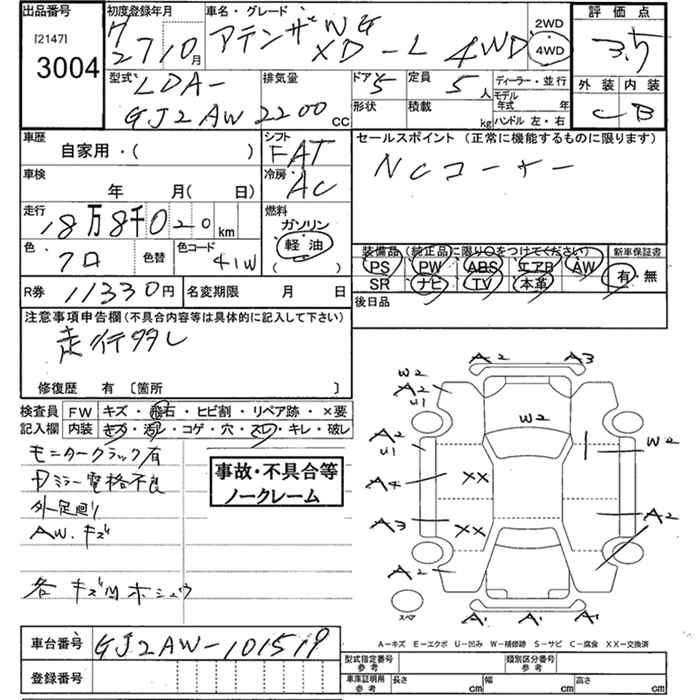 出品番号 初度登録年月 車名・グレード 2WD 4WD 評価点
[21471
3004
H 27 10月
アテンザWG
XD-L 4WD
3.5
型式 排気量 ドア 定員 ディーラー・並行 外装 内装
LDA-
GJ2AW 2200 CC
5 5人
形状 積載 kg
モデル年式 年
ハンドル 左・右
C B
車歴 シフト セールスポイント (正常に機能するものに限ります)
自家用・( )
FAT
NCコーナー
車検 年 月( 日) 冷房 AC
走行 18万8千020km
燃料
ガソリン
軽油
( )
色 クロ 色替 色コード 41W
装備品 (純正品に限り○をつけてください) 新車保証書
PS PW ABS エアB AW 有・無
SR ナビ TV 本革
R券 11330円 名変期限 月 日
後日品
注意事項申告欄(不具合内容等は具体的に記入して下さい)
走行多し
修復歴 有 〔箇所 〕
検査員 FW キズ・飛石・ヒビ割・リペア跡・×要
記入欄 内装 キズ・汚レ・コゲ・穴・スレ・キレ・破レ
モニタークラック有
Dミラー電格不良
外足廻り
AW.キズ
各キズ凹ホシュウ
事故・不具合等
ノークレーム
A2 A3
W2
A2
U1
W2
A2
U1
W2
A4
XX
A3
XX
A2
A2
A1 A1 A1
スペア
A-キズ E-エクボ U-凹み W-補修跡 S-サビ C-腐食 XX-交換済
車台番号 GJ2AW-101519
登録番号
型式指定番号 参考 類別区分番号 参考
車庫証明用 参考 長さ cm 幅 cm 高さ cm